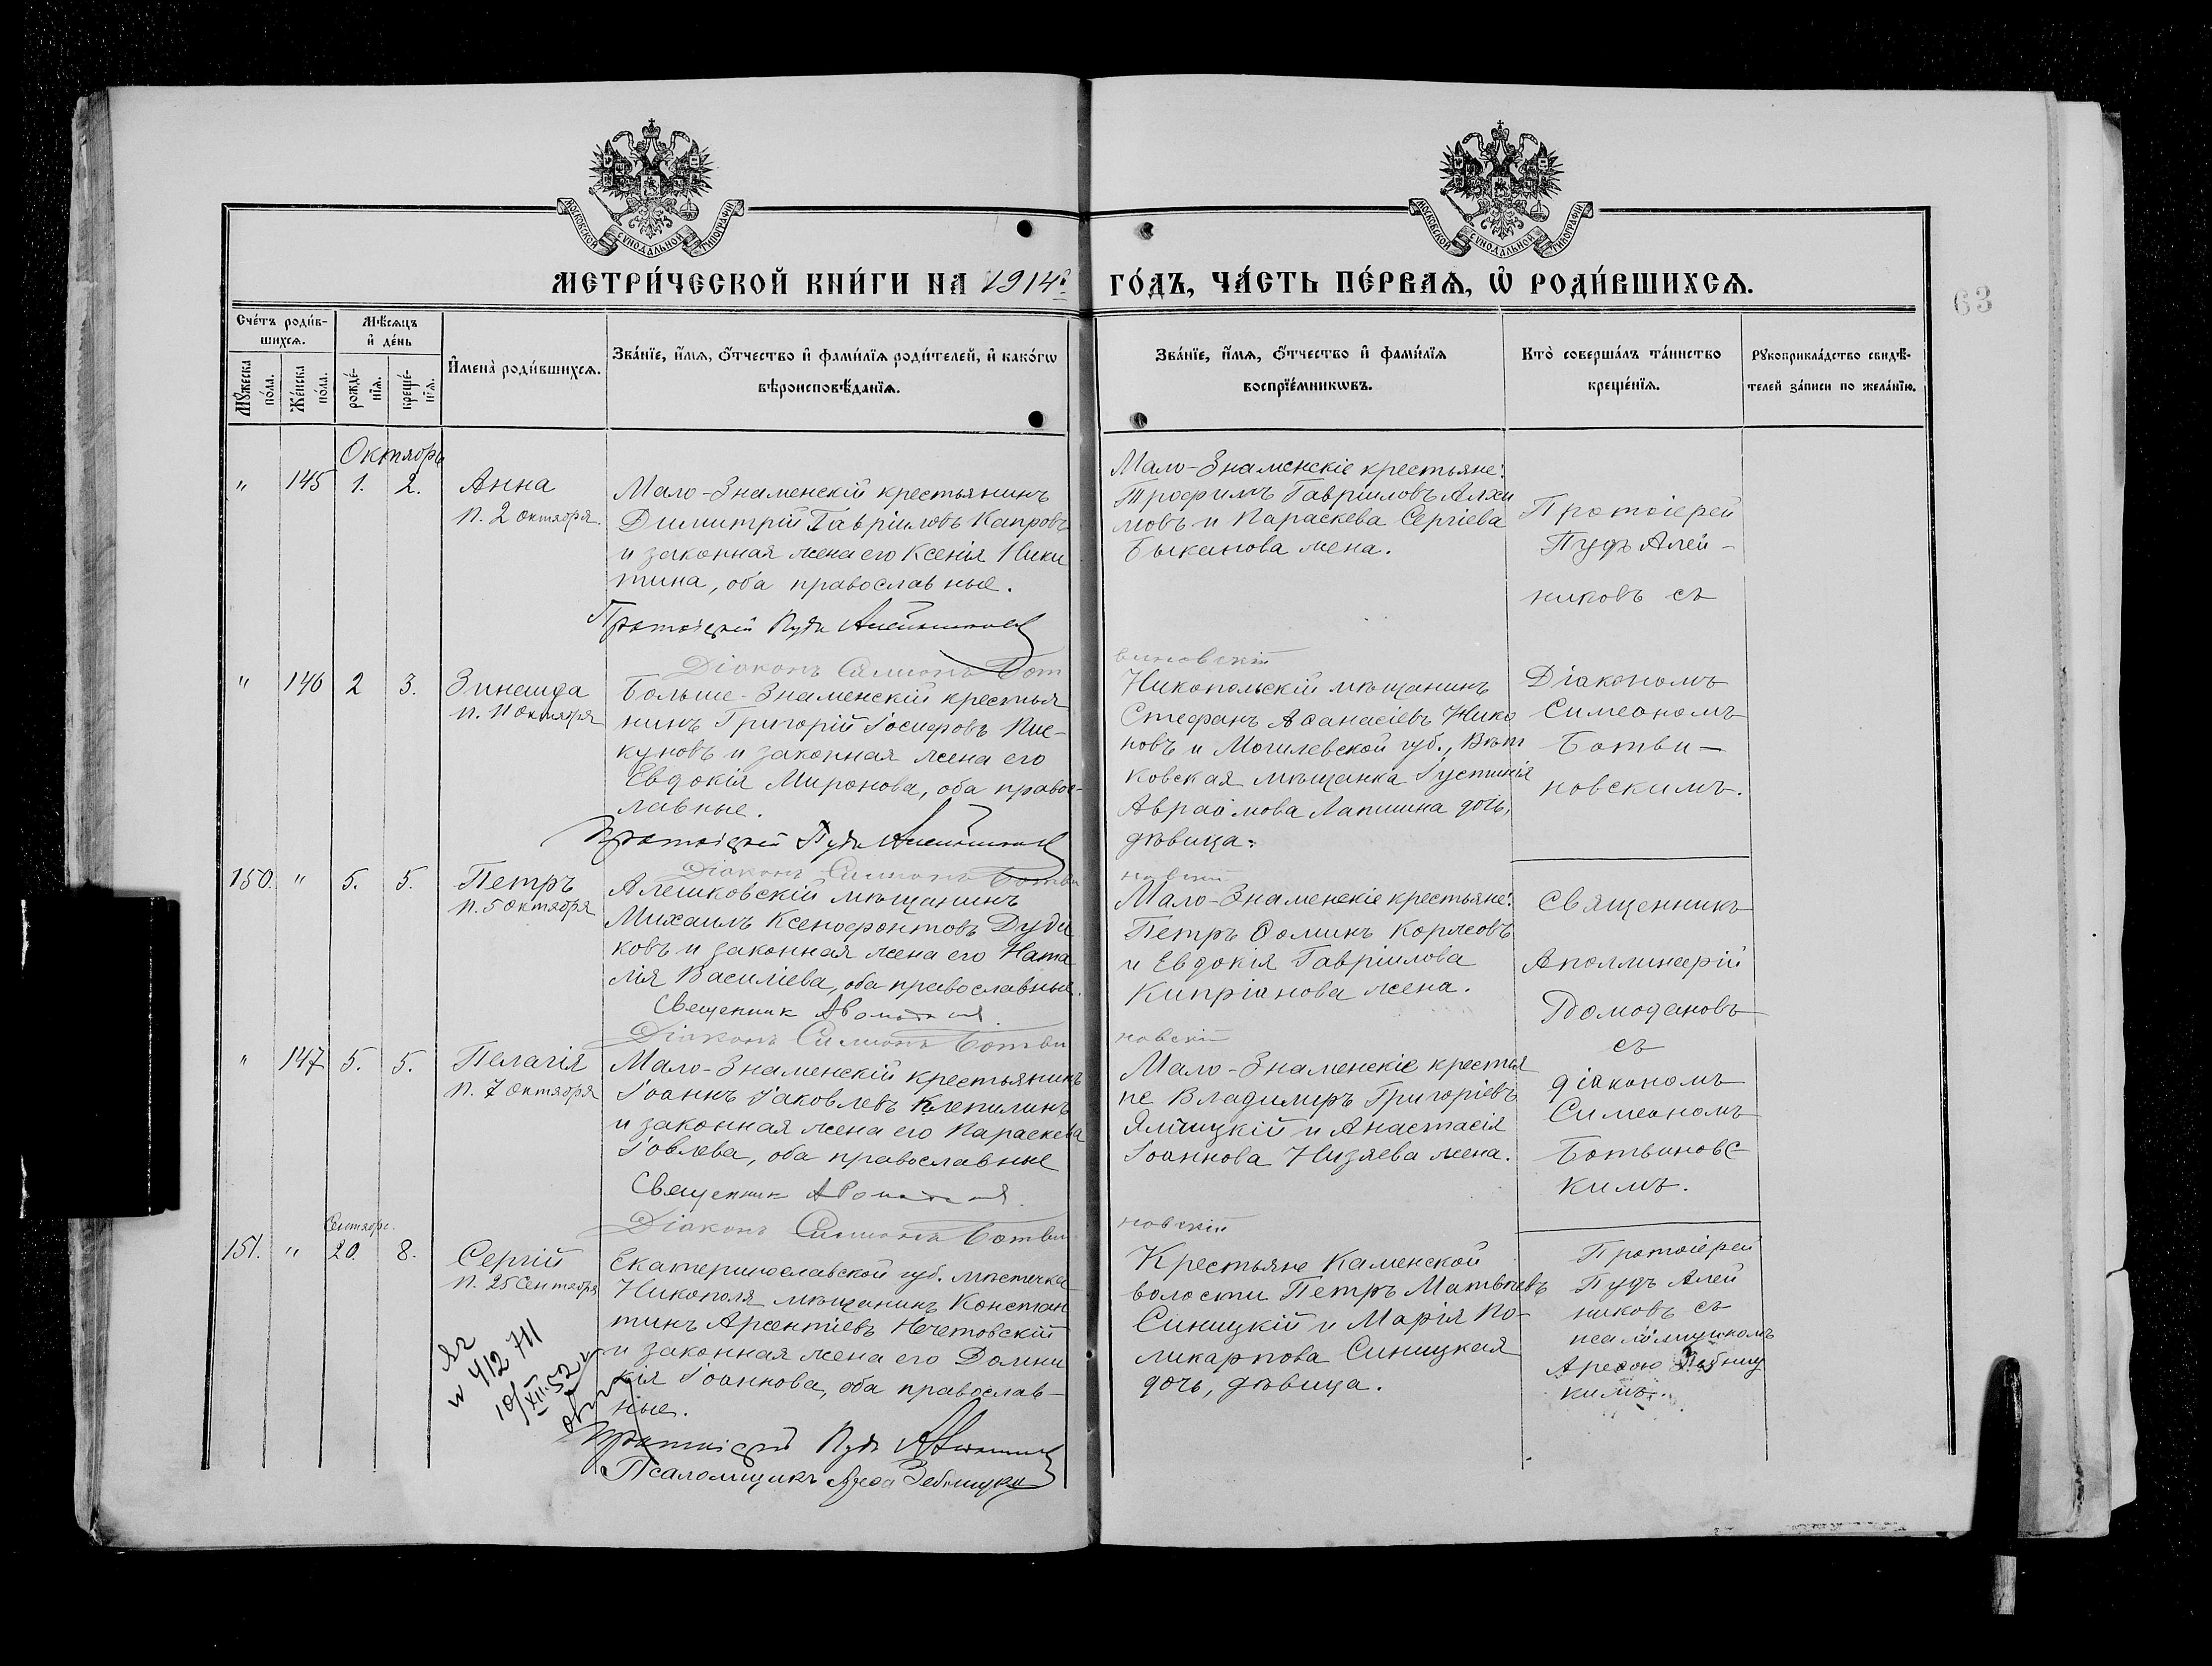 МОСКОВСКОЙ СУНОДАЛЬНОЙ ТИПОГРАФІИ
МОСКОВСКОЙ СУНОДАЛЬНОЙ ТИПОГРАФІИ
МЕТРИ́ЧЕСКОЙ КНИ́ГИ НА 1914й ГО́ДЪ, ЧА́СТЬ ПЕ́РВАѦ, Ѽ РОДИ́ВШИХСѦ.
63
Сче́тъ роди́в-
шихсѧ.
Мѣсѧцъ
и҆ де́нь
Мꙋжеска
по́ла.
Же́нска
по́ла.
рожде́-
нїѧ.
креще́-
нїѧ.
И҆мена̀ роди́вшихсѧ.
Зва́нїе, и҆́мѧ, ѻ҆́тчество и҆ фами́лїѧ роди́телей, и҆ како́гѡ
вѣроисповѣ́данїѧ.
Зва́нїе, и҆́мѧ, ѻ҆́тчество и҆ фами́лїѧ
воспрїе́мникѡвъ.
Кто̀ соверша́лъ та́инство
креще́нїѧ.
Рꙋкоприкла́дство свидѣ́-
телей за́писи по жела́нїю.
Октябрь
" 145 1. 2.
Анна
п. 2 октября.
Мало-Знаменскій крестьянинъ
Димитрій Гавріиловъ Капровъ
и законная жена его Ксенія Ники
тина, оба православные.
Протоіерей Пудъ Алейниковъ
Діаконъ Симеонъ Бот
Мало-Знаменскіе крестьяне:
Трофимъ Гавріиловъ Алхи
мовъ и Параскева Сергіева
Быканова жена.
виновскій
Протоіерей
Пудъ Алей-
никовъ съ
" 146 2 3.
Зинаида
п. 11 октября
Больше-Знаменскій крестья
нинъ Григорій Іосифовъ Пис-
куновъ и законная жена его
Евдокія Миронова, оба правос-
лавные.
Протоіерей Пудъ Алейниковъ
Діаконъ Симеонъ Ботви
Никопольскій мѣщанинъ
Стефанъ Аѳанасіевъ Нико
новъ и Могилевской губ., Вѣт
ковская мѣщанка Іустинія
Авраамова Лапшина дочь,
дѣвица.
новскій
Діакономъ
Симеономъ
Ботви-
новскимъ.
150. " 5. 5.
Петръ
п. 5 октября
Алешковскій мѣщанинъ
Михаилъ Ксенофонтовъ Дуди
ковъ и законная жена его Ната
лія Василіева, оба православные.
Священник
Діаконъ Симеонъ Ботви
Мало-Знаменскіе крестьяне:
Петръ Ѳоминъ Коржовъ
и Евдокія Гавріилова
Кипріанова жена.
новскій
Священникъ
Аполлинарій
Домодановъ
съ
діакономъ
Симеономъ
Ботвиновс-
кимъ.
" 147 5. 5.
Пелагія
п. 7 октября
Мало-Знаменскій крестьянинъ
Іоаннъ Іаковлевъ Клепилинъ
и законная жена его Параскева
Іовлева, оба православные
Священник
Діаконъ Симеонъ Ботви
Мало-Знаменскіе крестья
не Владимиръ Григоріевъ
Ялицкій и Анастасія
Іоаннова Низяева жена.
новскій
Сентябрь.
151. " 20. 8.
Сергій
п. 25 Сентября
Екатеринославской губ. мѣстечка
Никополя мѣщанинъ Констан
тинъ Арсентіевъ Нечетовскій
и законная жена его Домни
кія Іоаннова, оба православ-
ные.
Протоіерей Пудъ Алейниковъ
Псаломщикъ Ареѳа
Крестьяне Каменской
волости Петръ Матвѣевъ
Синицкій и Марія По-
ликарпова Синицкая
дочь, дѣвица.
Протоіерей
Пудъ Алей
никовъ съ
псаломщикомъ
Ареѳою
кимъ.
ЯГ
№ 412 711
10/XII-52 г